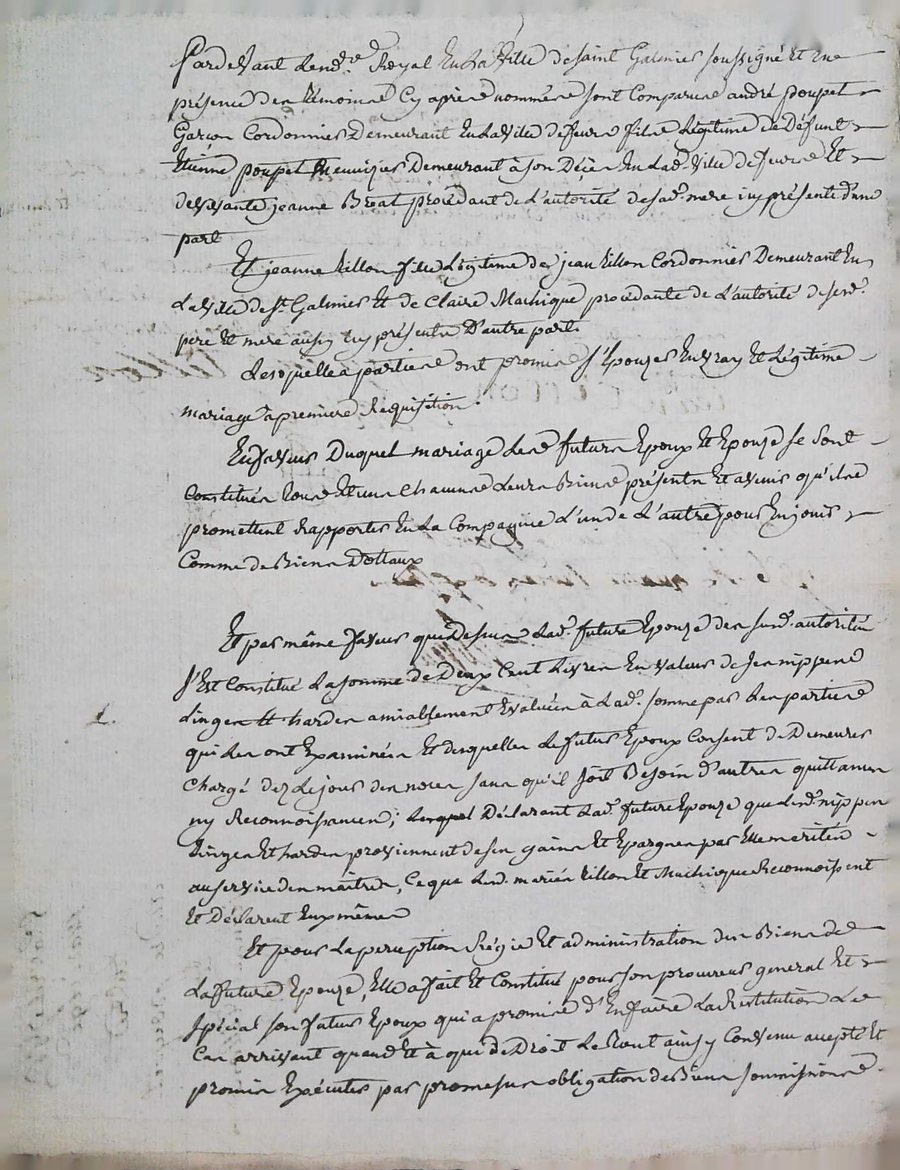 Pardevant Le nd.re Royal En La Ville de saint Galmier soussigné Et En
présence des témoins Cy après nommés sont Comparus andré poupet
Garçon Cordonnier Demeurant En La Ville de feurs fils Légitime de Défunt
Etienne poupet Meunizier Demeurant à son Décès En Lad. Ville de feurs Et
de vivante jeanne Breat procédant de L'autorité de sad. mere icy présente d'une
part
Et jeanne Killon fille Légitime de jean Killon Cordonnier Demeurant En
La Ville de St. Galmier Et de Claire Machique procedante de L'autorité de send.
pere Et mere aussy icy présents D'autre part.
Lesquelles parties ont promis s'Epouzer En vray Et Légitime
mariage a premiere Requisition.
En faveur Duquel mariage Lesd. futurs Epoux Et Epouze se sont
Constitués tous Et uns Chacuns Leurs Biens présents Et avenir qu'ils
promettent Rapporter En La Compagnie L'un de L'autre pour En jouir
Comme de Biens Dottaux
Et par même faveur que Dessus Lad. future Epouze des susd. autorités
s'Est Constitué La somme de Deux Cent Livres En valeur de ses nippes
Linges Et hardes amiablement Evaluées à Lad. somme par Les parties
qui Les ont Examinées Et desquelles Le futur Epoux Consent de Demeurer
Chargé dez Le jour des noces sans qu'il soit Besoin d'autres quittances
ny Reconnoissances; Lesquel Déclarant Lad. future Epouze que Lesd. nippes
Linges Et hardes proviennent de ses gains Et Epargnes par Elle mérités
au service des maîtres, Ce que Lesd. mariés Killon Et Machique Reconnoissent
Et Déclarent Eux mêmes
Et pour La perception Régie Et administration des Biens de
La future Epouze, Elle a fait Et Constitué pour son procureur general Et
spécial son futur Epoux qui a promis d'En faire La Restitution Le
Cas arrivant quand Et à qui de Droit Le tout ainsy Convenu accepté Et
promis Exécuter par promesses obligation de Biens soumissions